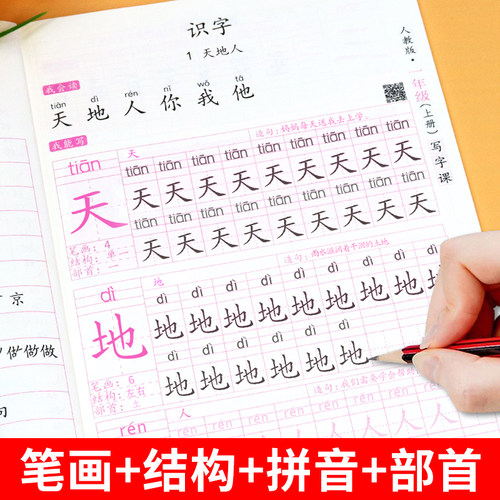 识字
1 天地人
人教版·一年级(上册)写字课
我会读
tiān dì rén nǐ wǒ tā
天 地 人 你 我 他
我能写
tiān
天 造句:妈妈每天送我去上学。
tiān tiān tiān tiān tiān tiān tiān tiān
天 天 天 天 天 天 天 天 天
tiān tiān tiān tiān tiān tiān tiān tiān tiān
天 天 天 天 天 天 天 天
笔画:4
结构:单一
部首:一
dì
地 造句:雨水滋润着干涸的土地
dì dì dì dì dì dì dì dì
地 地 地 地 地 地 地 地 地
dì dì dì dì dì
地 地 地 地 地
笔画:6
结构:左右
部首:土
rén
人
rén rén rén rén rén
人 人 人
京
做做做
句
笔画+结构+拼音+部首